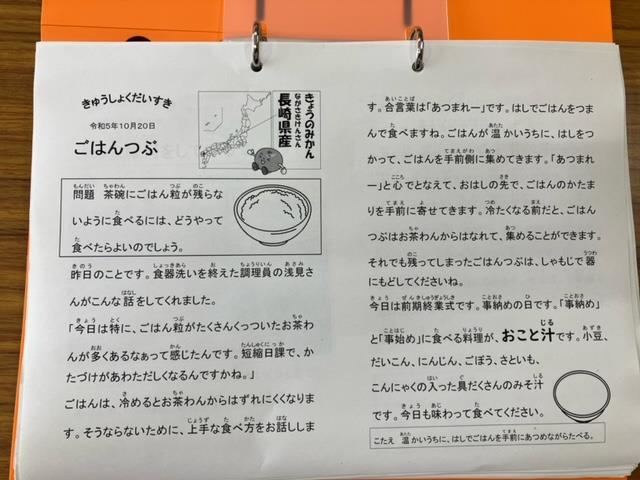 きゅうしょくだいすき
令和5年10月20日
ごはんつぶ
きょうのみかん
ながさきけんさん
長崎県産
問題　茶碗にごはん粒が残らな
いように食べるには、どうやって
食べたらよいのでしょう。
昨日のことです。食器洗いを終えた調理員の浅見さ
んがこんな話をしてくれました。
「今日は特に、ごはん粒がたくさんくっついたお茶わ
んが多くあるなぁって感じたんです。短縮日課で、か
たづけがあわただしくなるんですかね。」
ごはんは、冷めるとお茶わんからはずれにくくなりま
す。そうならないために、上手な食べ方をお話ししま
す。合言葉は「あつまれー」です。はしでごはんをつま
んで食べますね。ごはんが温かいうちに、はしをつ
かって、ごはんを手前側に集めてきます。「あつまれ
ー」と心でとなえて、おはしの先で、ごはんのかたま
りを手前に寄せてきます。冷たくなる前だと、ごはん
つぶはお茶わんからはなれて、集めることができます。
それでも残ってしまったごはんつぶは、しゃもじで器
にもどしてくださいね。
今日は前期終業式です。事納めの日です。「事納め」
と「事始め」に食べる料理が、おこと汁です。小豆、
だいこん、にんじん、ごぼう、さといも、
こんにゃくの入った具だくさんのみそ汁
です。今日も味わって食べてください。
こたえ　温かいうちに、はしでごはんを手前にあつめながらたべる。